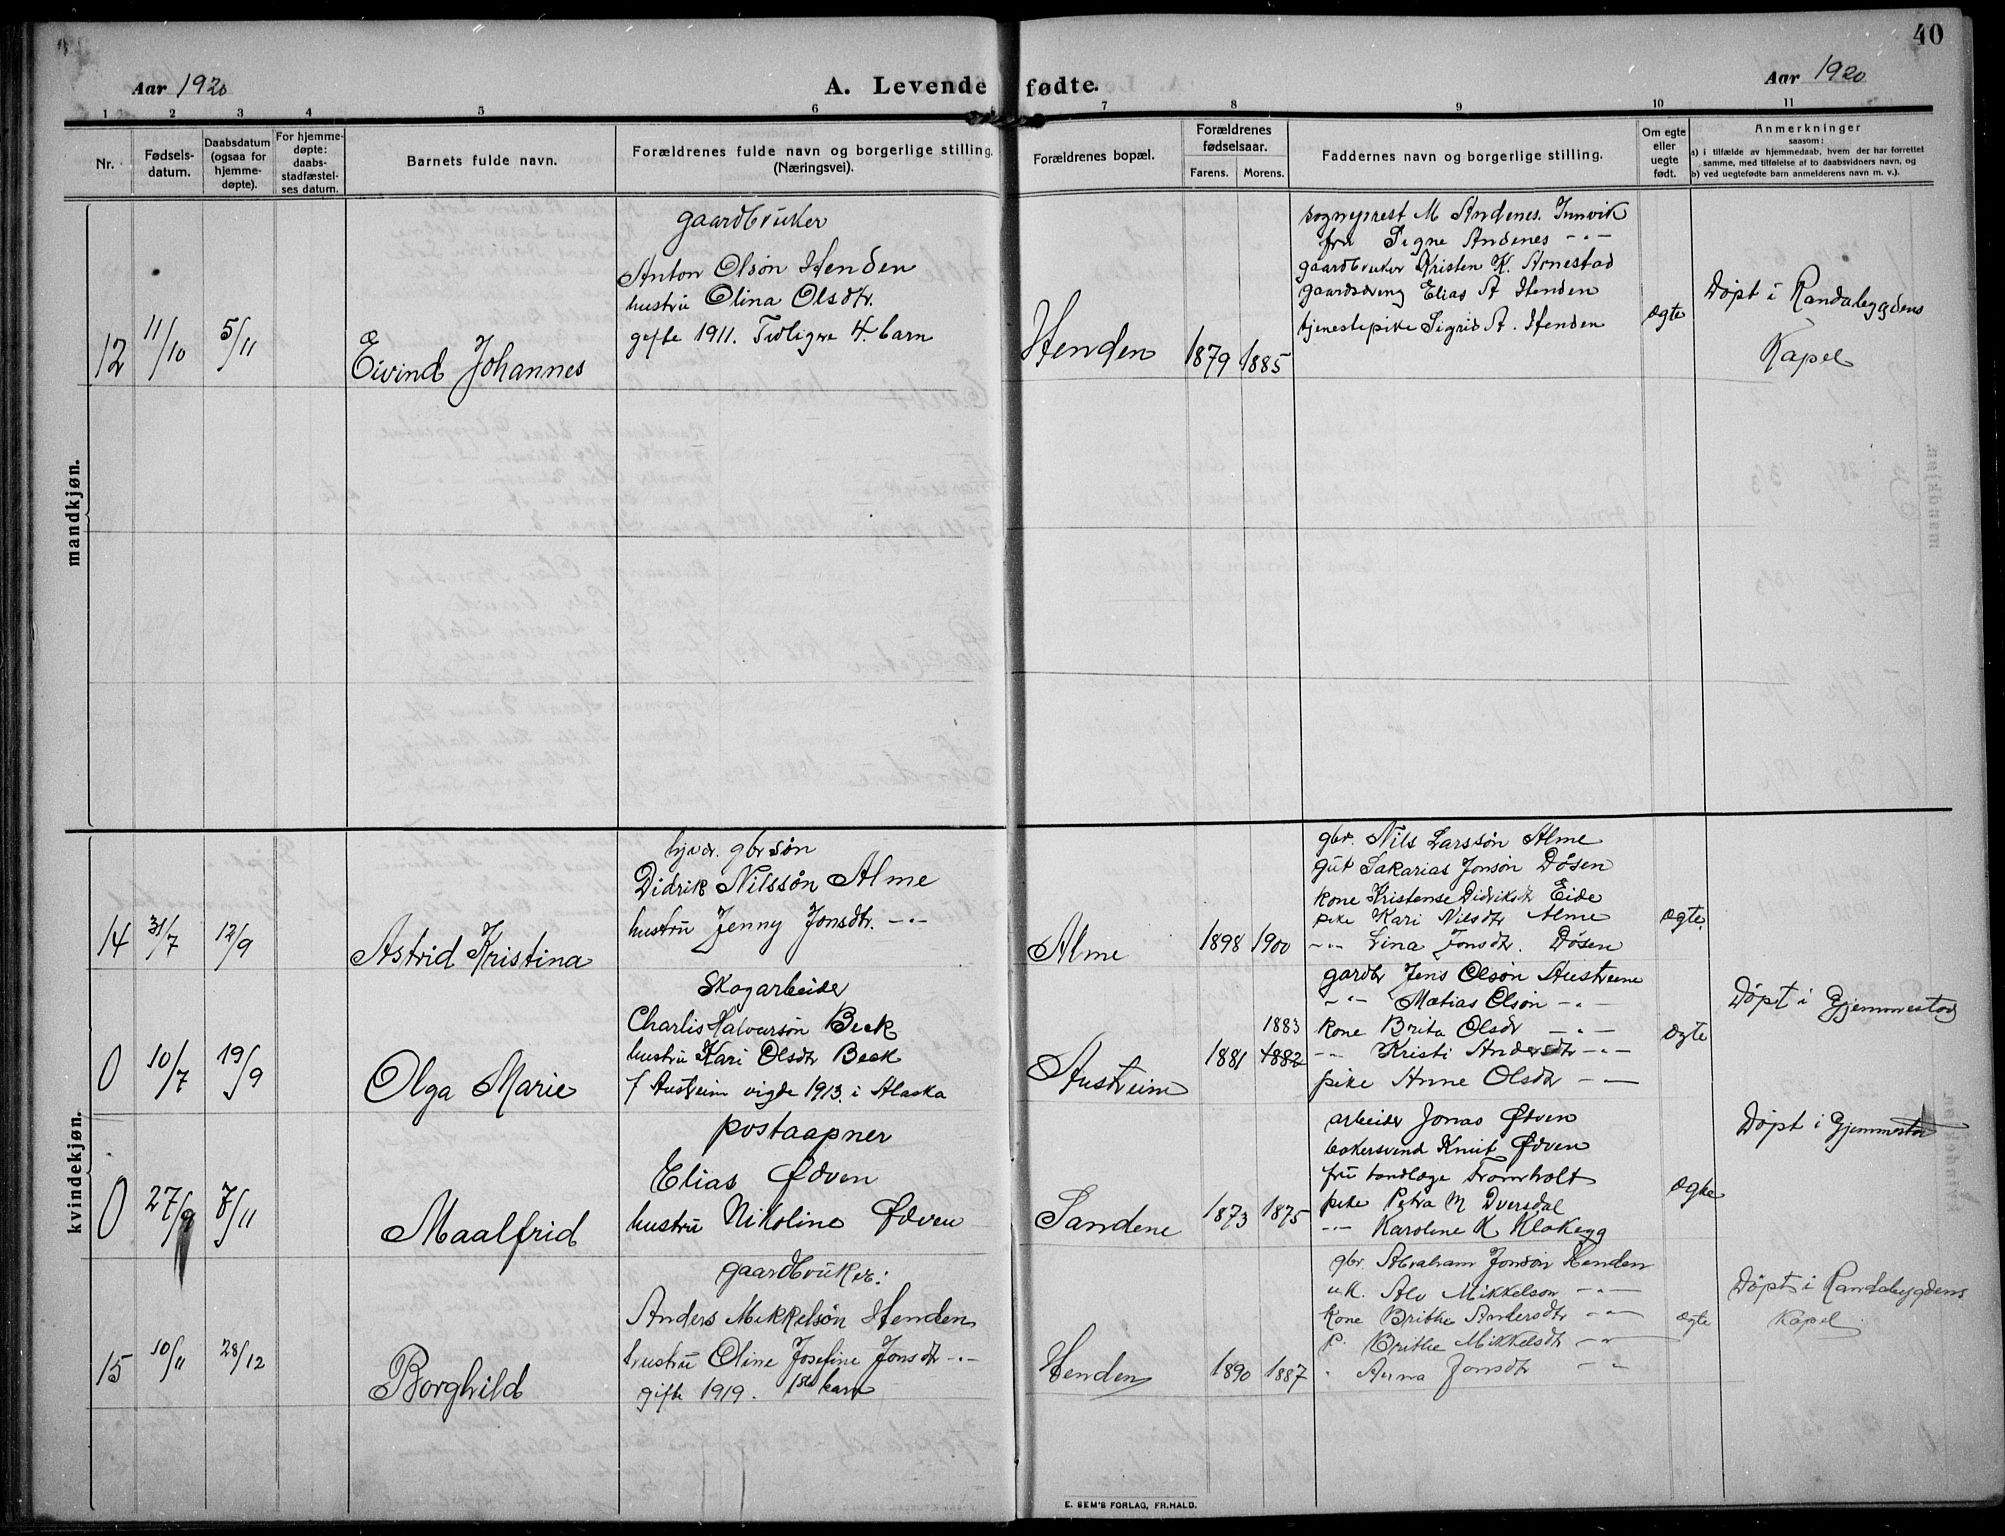 40
Aar 1920
A. Levende fødte.
Aar 1920
1 2 3 4 5 6 7 8 9 10 11
Nr.
Fødsels-
datum.
Daabsdatum
(ogsaa for
hjemme-
døpte).
For hjemme-
døpte:
daabs-
stadfæstel-
ses datum.
Barnets fulde navn.
Forældrenes fulde navn og borgerlige stilling.
(Næringsvei).
Forældrenes bopæl.
Forældrenes
fødselsaar.
Farens. Morens.
Faddernes navn og borgerlige stilling.
Om egte
eller
uegte
født.
Anmerkninger
saasom:
a) i tilfælde av hjemmedaab, hvem der har forrettet
samme, med tilføielse af to daabsvidners navn, og
b) ved uegtefødte barn anmelderens navn m. v.).
mandkjøn.
12
11/10
5/11
Eivind Johannes
gaardbruker
Anton Olsøn Henden
hustru Olina Olsdtr.
gifte 1911. Tidligere 4. barn
Henden
1879 1885
sogneprest M Andenes. Innvik
fru Signe Andenes -"-
gaardbruker Kristen K. Arnestad
gaardsdreng Elias A Henden
tjenestepike Sigrid A. Henden
ægte
Døpt i Randabygdens
Kapel
kvindekjøn.
14
31/7
12/9
Astrid Kristina
gbr søn
Didrik Nilssøn Alme
hustru Jenny Jonsdtr. -"-
Alme
1898 1900
gbr. Nils Larssøn Alme
gut Sakarias Jonsøn Døsen
kone Kristense Didriksdtr Eide
pike Kari Nilsdtr Alme
-"- Lina Jonsdtr. Døsen
ægte.
0
10/7
19/9
Olga Marie
Skogarbeider
Charlis Halvorsøn Beck
hustru Kari Olsdtr Beck
f Austreim vigde 1913. i Alaska
Austreim
1883
1881 1882
gardbr Jens Olsøn Austreim
-"- Matias Olsøn -"-
kone Brita Olsdr -"-
-"- Kristi Andersdtr -"-
pike Anne Olsdtr -"-
ægte
Døpt i Gjemmestad
0
27/9
7/11
Maalfrid
postaapner
Elias Ødven
hustru Nikoline Ødven
Sandene
1873 1875
arbeider Jonas Ødven
bakersvend Knut Ødven
fru tandlæge Tromholt
pike Petra M Dversdal
-"- Karoline K Klakegg
ægte
Døpt i Gjemmestad
15
10/11
28/12
Borghild
gaardbruker:
Anders Mikkelsøn Henden
hustru Oline Josefine Jonsdtr -"-
gifte 1919. 1ste barn
Henden
1890 1887
gbr. Abraham Jonsøn Henden
u.k. Alv Mikkelson -"-
Kone Brithe Andersdtr -"-
p. Brithe Mikkelsdtr -"-
" Anna Jonsdtr -"-
ægte
Døpt i Randabygdens
Kapel
E. SEM'S FORLAG, FR.HALD.